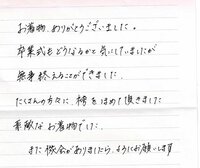 お着物、ありがとうございました。
卒業式もどうなるかと気にしていましたが
無事終えることができました。
たくさんの方々に、袴をほめて頂きました
素敵なお着物でした。
また機会がありましたら、よろしくお願いします